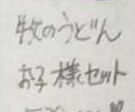 牧のうどん
お子様セット